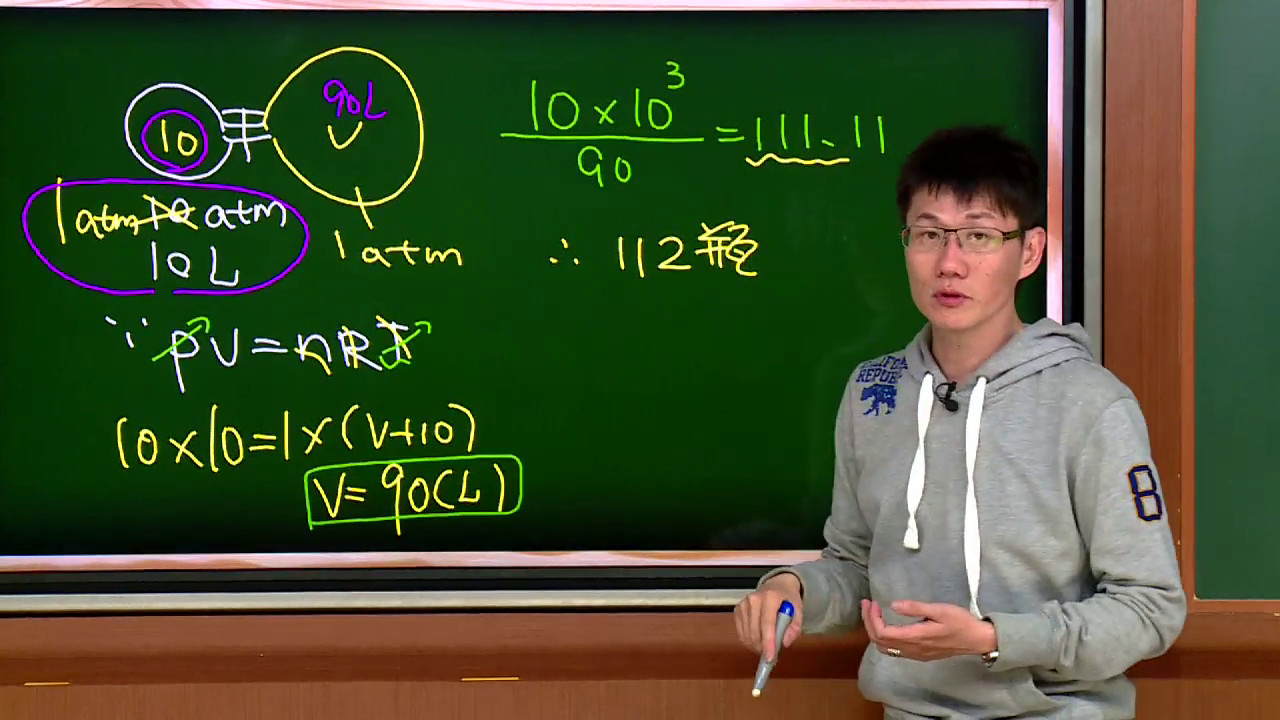 90L
10 V
1atm 10 atm
10 L
1 atm
∵ PV=nRT
10×10=1×(V+10)
V=90(L)
10×10³
90
=111.11
∴ 112瓶
REPUB
8